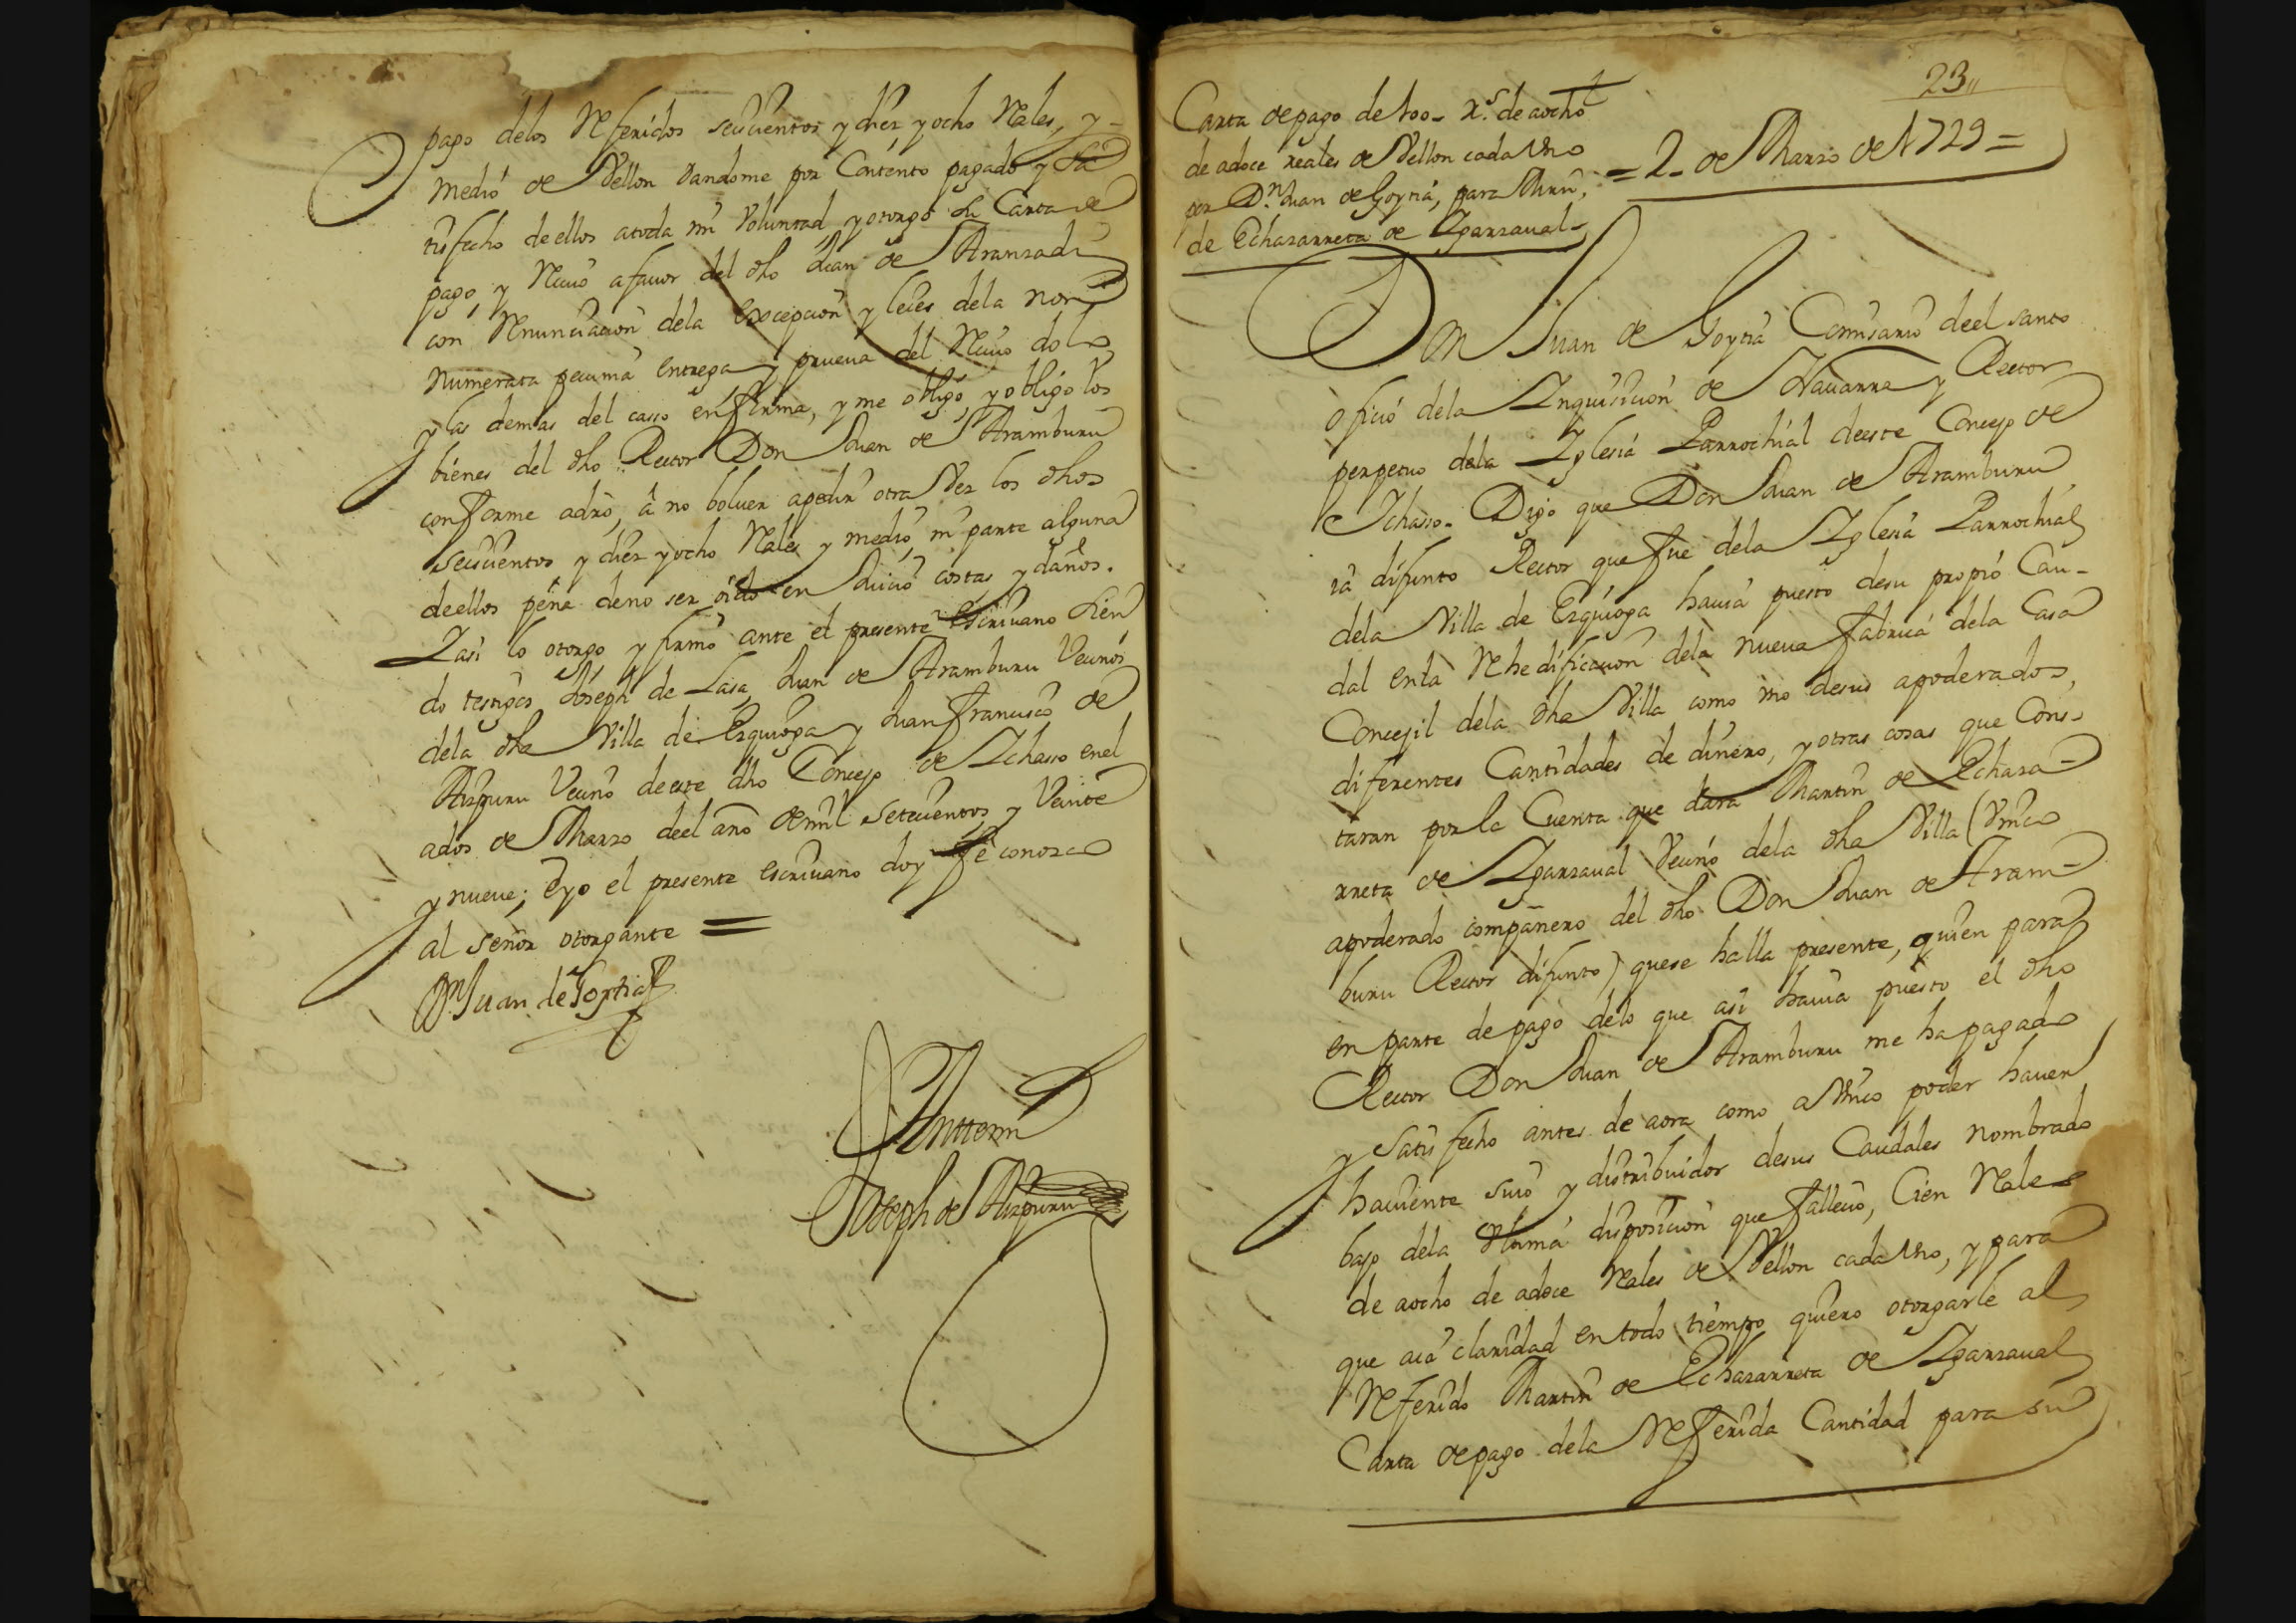 pago delos Referidos seiscientos y diez y ocho Reales, y
medio de Vellon dandome por Contento pagado y sa
tisfecho de ellos atoda mi Voluntad y otorgo Carta de
pago y Reciuo a fauor del dho Juan de Aranzadi
con Renunciacion dela excepcion y leies dela non
numerata pecunia entrega y prueua del Reciuo dolo
y las demas del casso en forma, y me obligo y obligo los
bienes del dho Rector Don Juan de Aramburu
conforme adro, â no boluer apedir otra Vez los dhos
seiscientos y diez y ocho Reales y medio, ni parte alguna
de ellos pena deno ser oido en Juicio costas y daños.
Y asi lo otorgo y firmo ante el presente escriuano sien
do testigos Joseph de Lasa, Juan de Aramburu Vecinos
dela dha Villa de Ezquioga y Juan francisco de
Aizpuru Vecino de este dho Concejo de Ichasso enel
ados de Marzo deel año de mil setecientos y Veinte
y nueue; E yo el presente escriuano doy fê conozco
al señor otorgante =
Dn Juan de Goytia
Antemi
Joseph de Aizpuru
23
Carta de pago de 100 Rs. de aocho
de adoce reales de Vellon cada Vno
por Dn. Juan de Goytia, para Martin,
de Echazarreta de Ygarzaual
= 2 de Marzo de 1729 =
Don Juan de Goytia Comisario deel santo
oficio dela Inquisicion de Nauarra y Rector
perpetuo dela Yglesia Parrochial de este Concejo de
Ichasso. Digo que Don Juan de Aramburu
ia difunto Rector que fue dela Yglesia Parrochial
dela Villa de Ezquioga hauia puesto desu propio Cau-
dal enla Rehedificacion dela nueua fabrica dela Casa
Concejil dela dha Villa como vno desus apoderados,
diferentes Cantidades de dinero, y otras cosas que Cons-
taran por la Cuenta que dara Martin de Echaza-
rreta de Ygarzaual Vecino dela dha Villa (Vnico
apoderado compañero del dho Don Juan de Aram-
buru Rector difunto) quese halla presente, quien para
en parte de pago delo que asi hauia puesto el dho
Rector Don Juan de Aramburu me ha pagado
y satisfecho antes de aora como a Vnico poder hauer
hauiente suio y distribuidor desus Caudales nombrado
bajo dela Vltima disposicion que fallecio, Cien Reales
de aocho de adoce Reales de Vellon cada Vno, y para
que aia claridad en todo tiempo quiero otorgarle al
Referido Martin de Echazarreta de Ygarzaual
Carta de pago dela Referida Cantidad para su